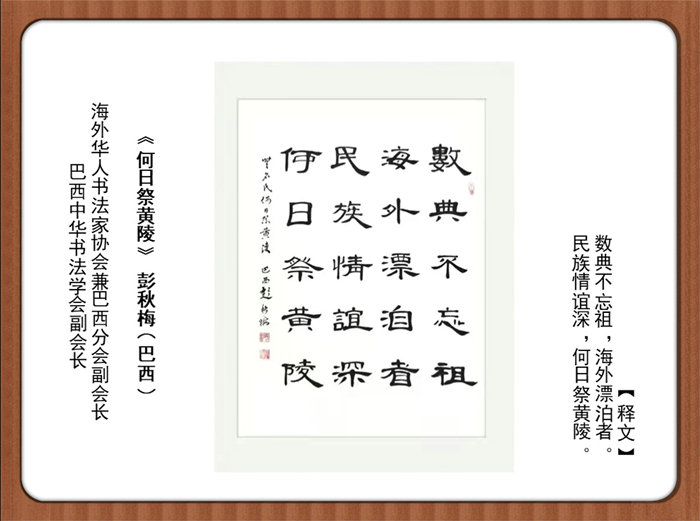 【释文】
数典不忘祖，海外漂泊者。
民族情谊深，何日祭黄陵。
數典不忘祖
海外漂泊者
民族情誼深
何日祭黄陵
民何日祭黄陵 巴西彭秋梅
《何日祭黄陵》 彭秋梅（巴西）
海外华人书法家协会兼巴西分会副会长
巴西中华书法学会副会长